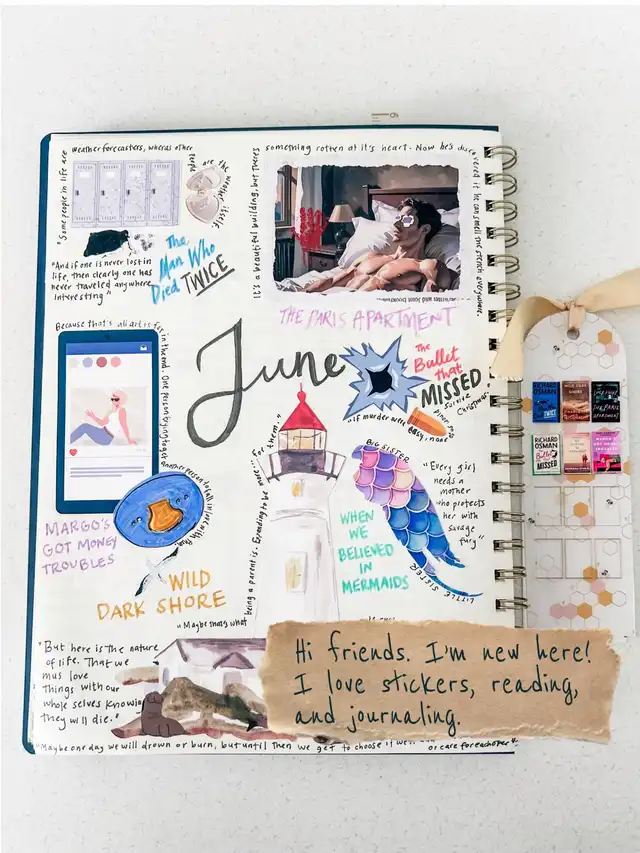 "Some people in life are
weather forecasters, whereas other
people are the weather itself.
"And if one is never lost in
life, then clearly one has
never traveled anywhere
interesting"
The
Man Who
Died TWICE
It's a beautiful building, but there's
something rotten at it's heart. Now he's discovered it he can smell the stench everywhere.
THE PARIS APARTMENT
June
The
Bullet
that
MISSED
"If murder were easy, none
survive
Christmas"
Because that's all art is
in the end. One person trying to get
another person to fall in love with
MARGO'S
GOT MONEY
TROUBLES
WILD
DARK SHORE
"Maybe that's what
being a parent is. Expanding to be
more... for them."
BIG SISTER
LITTLE SISTER
WHEN
WE
BELIEVED
IN
MERMAIDS
"Every girl
needs a
mother
who protects
her with
savage
fury"
"But here is the nature
of life. That we
mus love
things with our
whole selves knowing
they will die."
"Maybe one day we will drown or burn, but until then we get to choose if we
or care for each other"
RICHARD
OSMAN
WILD DARK
SHORE
THE PARIS
APARTMENT
RICHARD
OSMAN
The Bullet
that
MISSED
Hi friends. I'm new here!
I love stickers, reading,
and journaling.